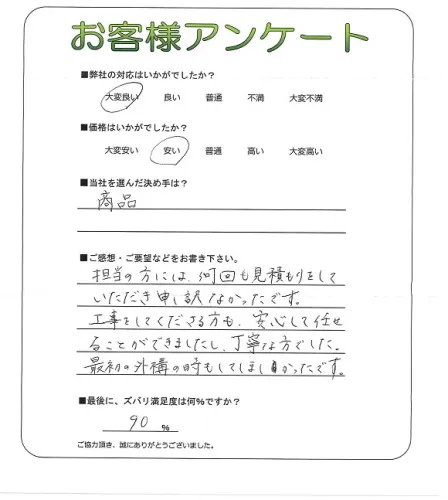 お客様アンケート
■弊社の対応はいかがでしたか?
大変良い 良い 普通 不満 大変不満
■価格はいかがでしたか?
大変安い 安い 普通 高い 大変高い
■当社を選んだ決め手は?
商品
■ご感想・ご要望などをお書き下さい。
担当の方には、何回も見積もりをして
いただき申し訳なかったです。
工事をしてくださる方も、安心して任せ
ることができましたし、丁寧な方でした。
最初の外構の時もしてほしかったです。
■最後に、ズバリ満足度は何%ですか?
90 %
ご協力頂き、誠にありがとうございました。